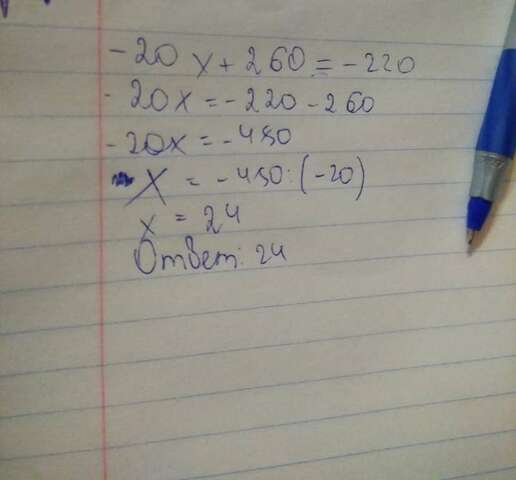 -20x+260=-220
-20x=-220-260
-20x=-480
x=-480:(-20)
x=24
Ответ: 24